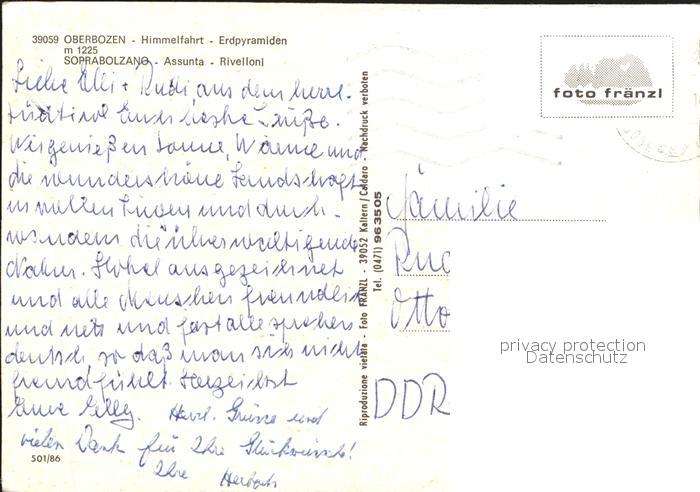 39059 OBERBOZEN - Himmelfahrt - Erdpyramiden
m 1225
SOPRABOLZANO - Assunta - Rivelloni
Liebe Elli + Rudi aus dem herrl.
Südtirol Euch liebe Grüße.
Wir genießen Sonne, Wärme und
die wunderschöne Landschaft
in vollen Zügen und durch-
wandern die überwältigende
Natur. Hotel ausgezeichnet
und alle Menschen freundlich
und nett und fast alle sprechen
deutsch, so daß man sich nicht
fremd fühlt. Herzlichst
Eure Elly. Herzl. Grüsse und
vielen Dank für Ihre Glückwünsche!
Ihre
501/86
Riproduzione vietata - Foto FRÄNZL - 39052 Kaltern/Caldaro - Nachdruck verboten
Tel. (0471) 963505
foto fränzl
Familie
Otto
DDR
privacy protection
Datenschutz